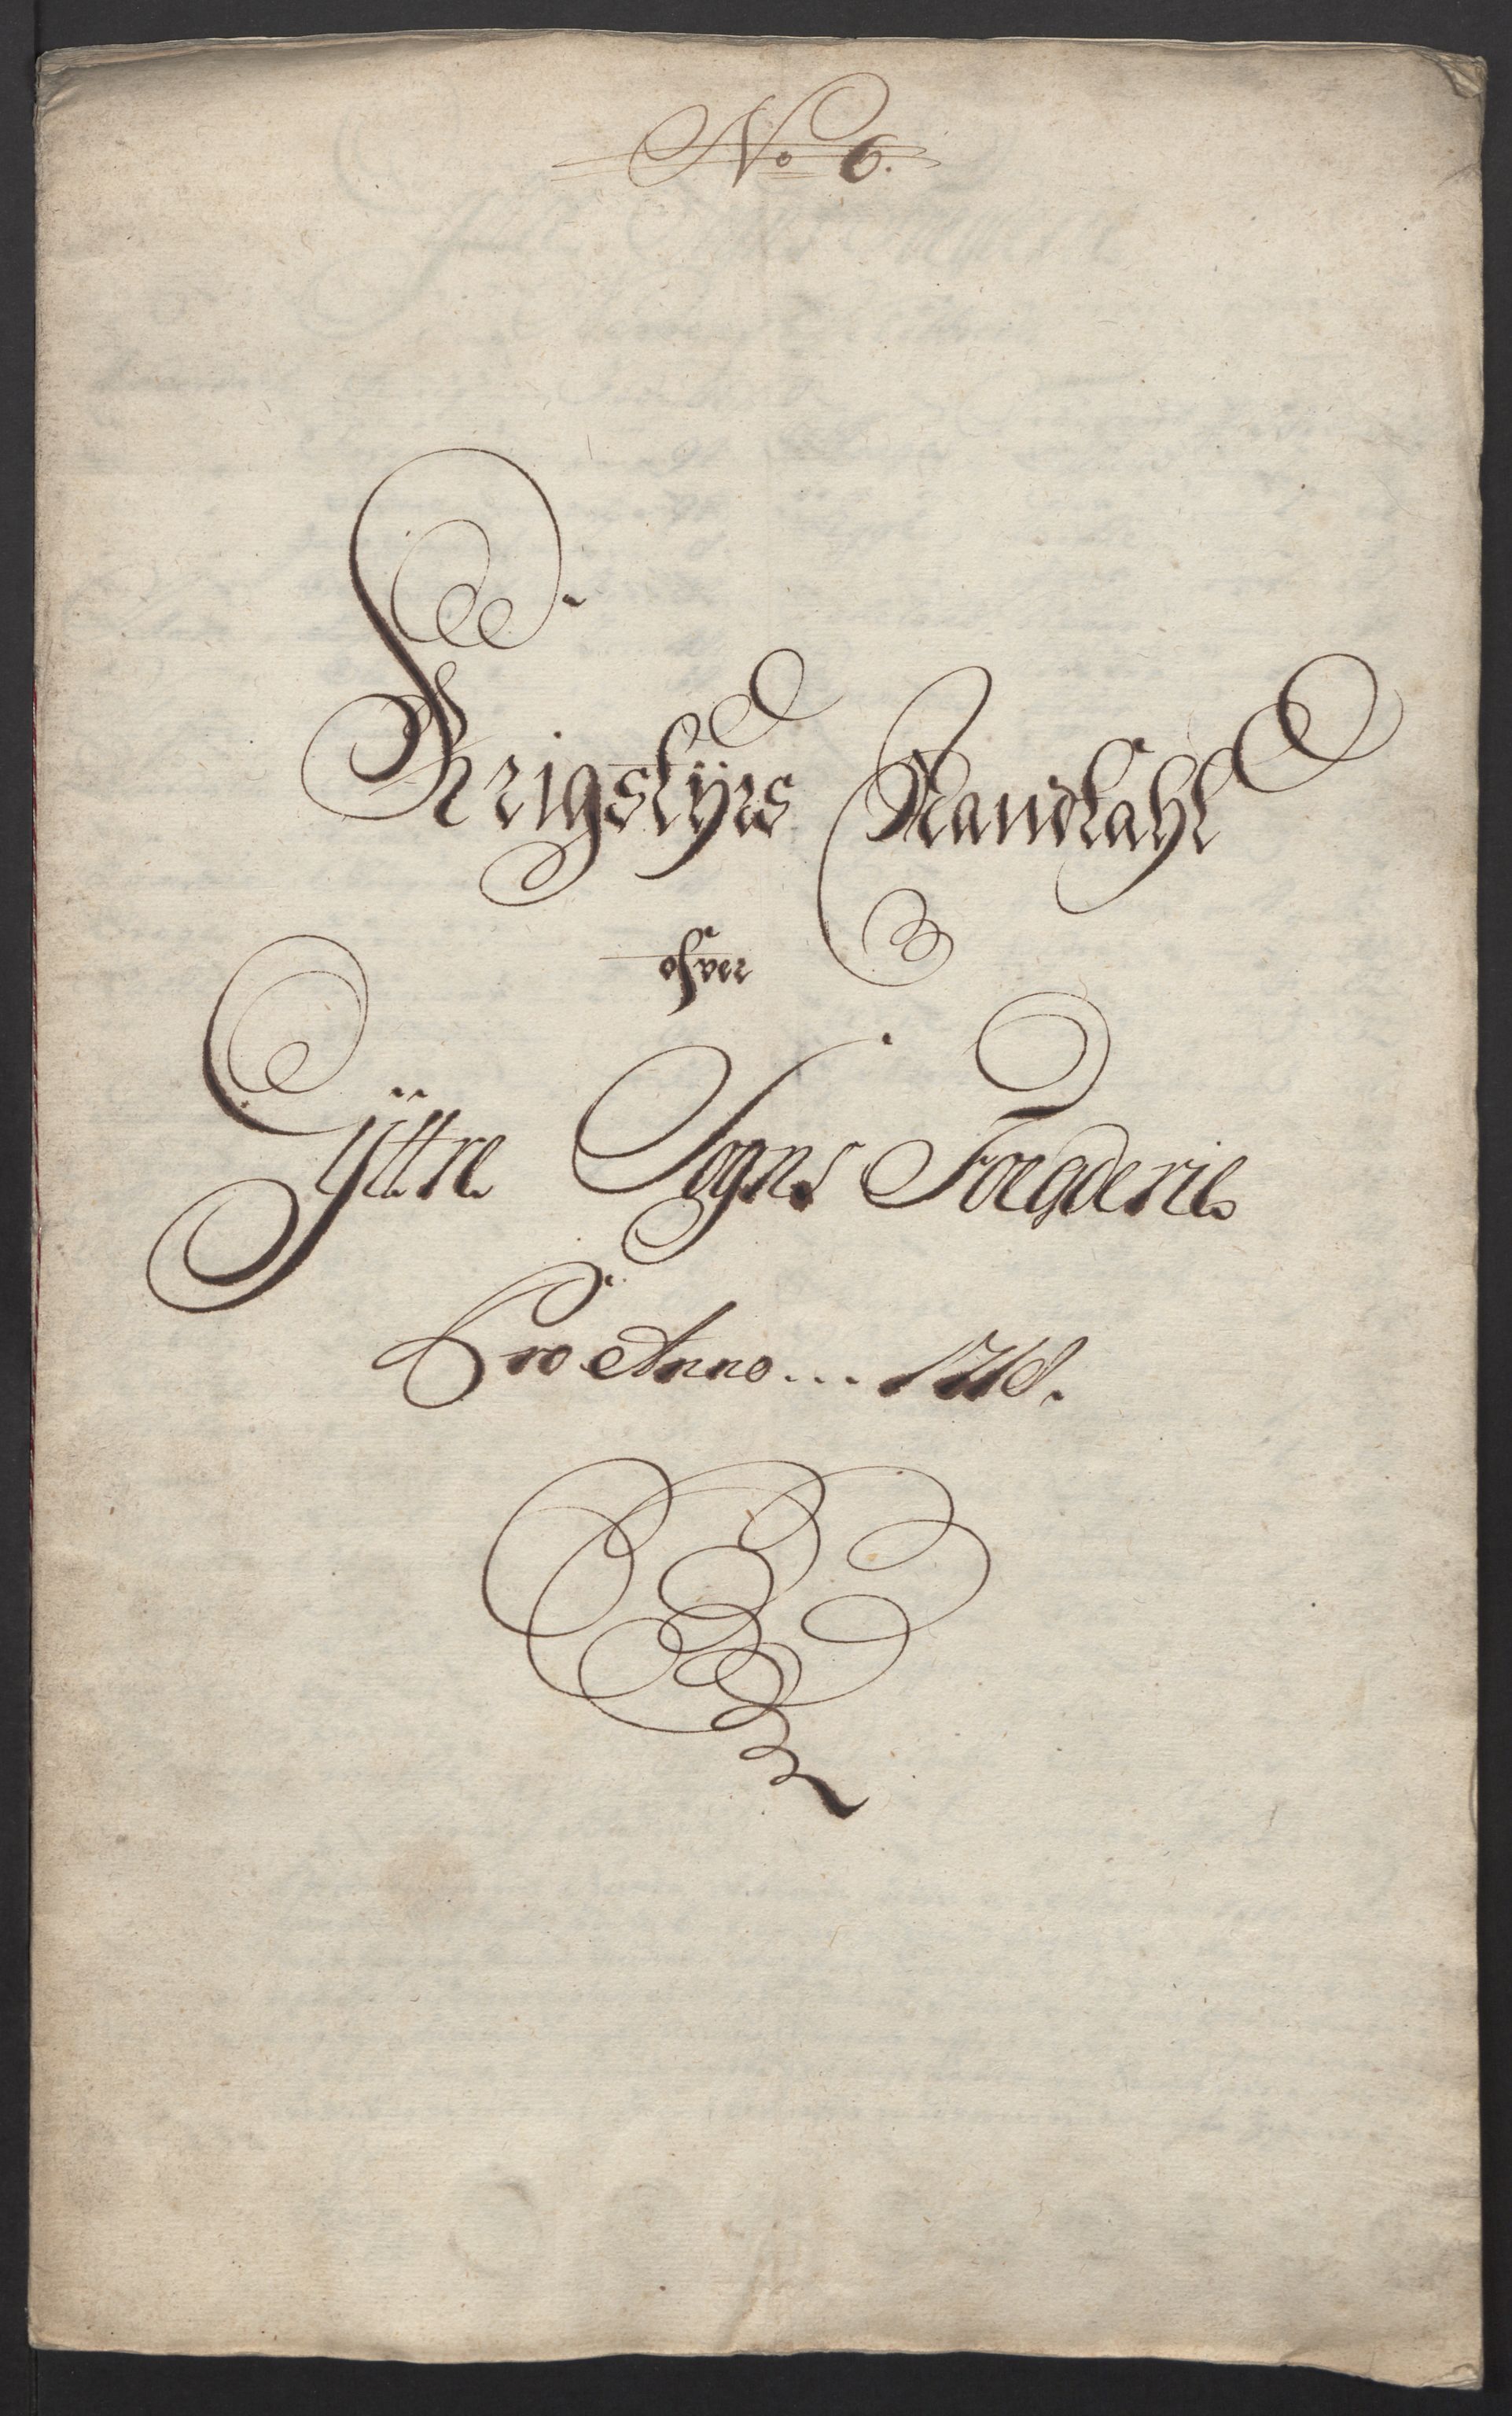 No 6.
Krigstÿrs Mandtahl
ofver
Ÿttre Sogns Foegderie
Pro Anno ... 1718.